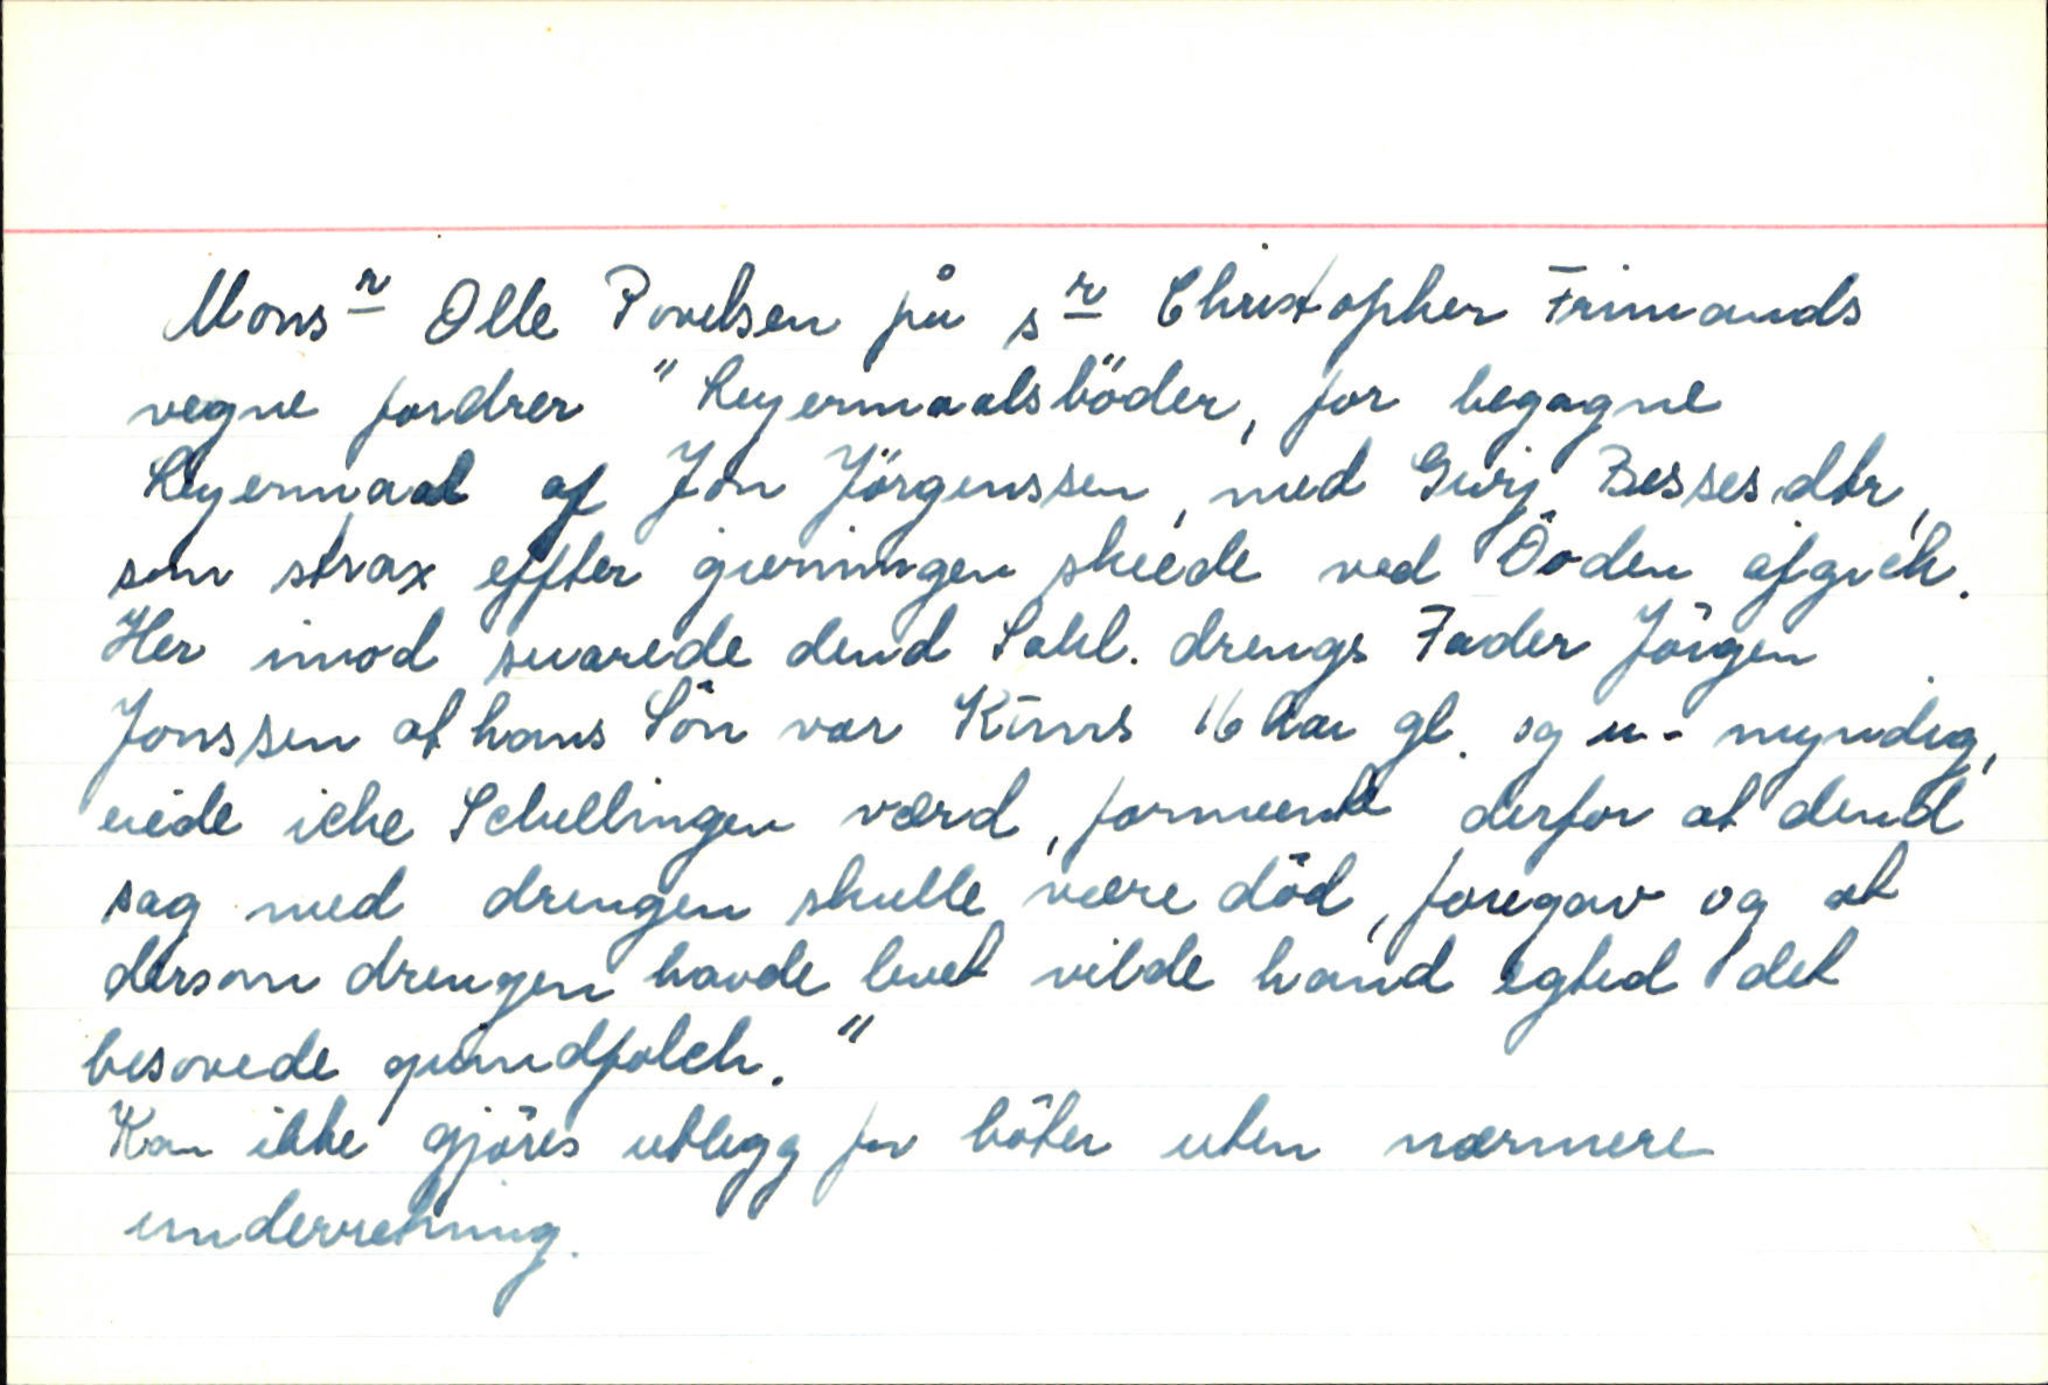 Monsr Olle Povelsen på sr Christopher Frimands
vegne fordrer "Leyermaalsböder, for begagne
Leyermaal af Jon Jörgenssen, med Gurj Besses dtr,
som strax effter gierningen skiede ved Döden afgick.
Her imod suarede dend Sahl. drengs Fader Jörgen
Jonssen at hans Sön var Kuns 16 aar gl. og u-myndig,
eiede iche Schellingen værd, formeente derfor at dend
sag med drengen skulle være död, foregav og at
dersom drengen havde levet vilde hand egted det
besovede quindfolch."
Kan ikke gjöres utlegg for böter uten nærmere
underretning.